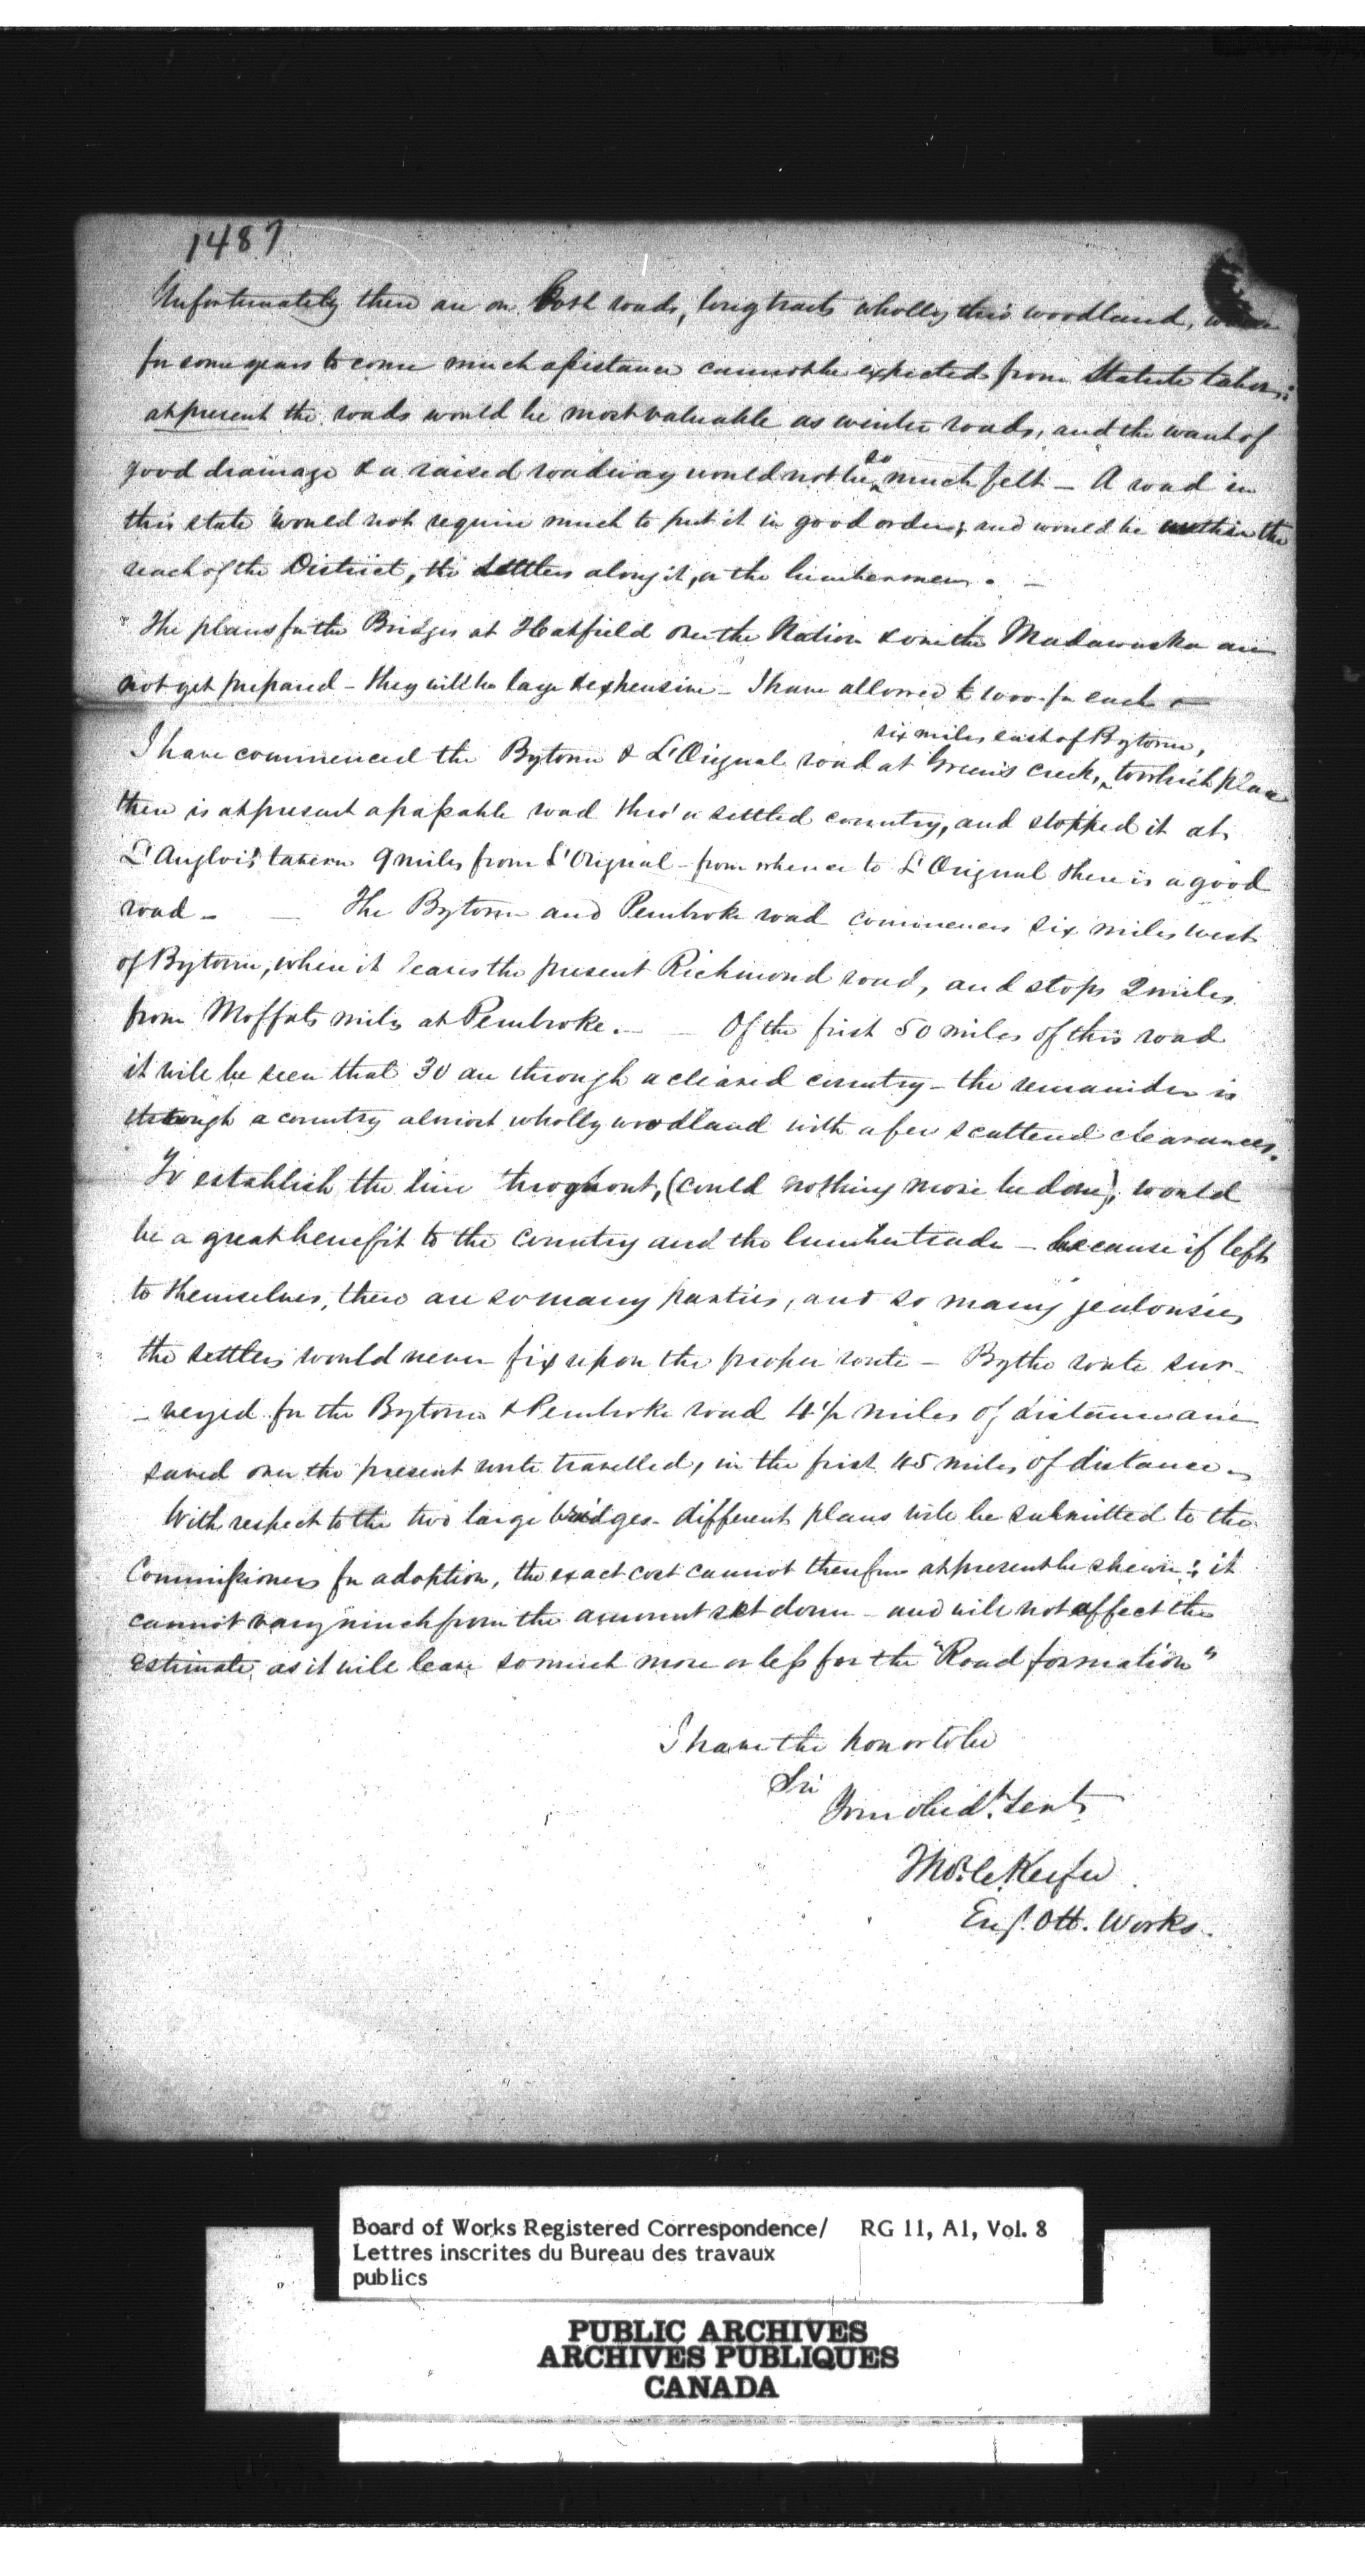 1487
Unfortunately there are on both roads, long tracts wholly thro' woodland, where
for some years to come much assistance cannot be expected from Statute labor:
at present the roads would be most valuable as winter roads, and the want of
good drainage & a raised roadway would not be so much felt – A road in
this state would not require much to put it in good order; and would be within the
reach of the District, the settlers along it, or the lumbermen. –
The plans for the Bridges at Hatfield over the Nation & over the Madawaska are
not yet prepared – they will be large & expensive – I have allowed £1000 for each –
six miles east of Bytown,
I have commenced the Bytown & L'Orignal road at Green's Creek, to which place
there is at present a passable road thro' a settled country, and stopped it at
L'Anglois' tavern 9 miles from L'Orignal – from whence to L'Orignal there is a good
road – – The Bytown and Pembroke road commences six miles west
of Bytown, where it leaves the present Richmond road, and stops 2 miles
from Moffats mills at Pembroke. – – Of the first 50 miles of this road
it will be seen that 30 are through a cleared country – the remainder is
through a country almost wholly woodland with a few scattered clearances.
To establish the line throghout, (could nothing more be done), would
be a great benefit to the country and the lumber trade – because if left
to themselves, there are so many parties, and so many jealousies
the settlers would never fix upon the proper route – By the route sur-
-veyed for the Bytown & Pembroke road 4½ miles of distance are
saved over the present route travelled, in the first 45 miles of distance –
With respect to the two large bridges – different plans will be submitted to the
Commissioners for adoption, the exact cost cannot therefore at present be shewn: it
cannot vary much from the amount set down – and will not affect the
estimate, as it will leave so much more or less for the "Road formation"
I have the honor to be
Sir
Your obedt. Sert.
Thos. C. Keefer
Engr. Ott. Works.
Board of Works Registered Correspondence/ RG 11, A1, Vol. 8
Lettres inscrites du Bureau des travaux
publics
PUBLIC ARCHIVES
ARCHIVES PUBLIQUES
CANADA